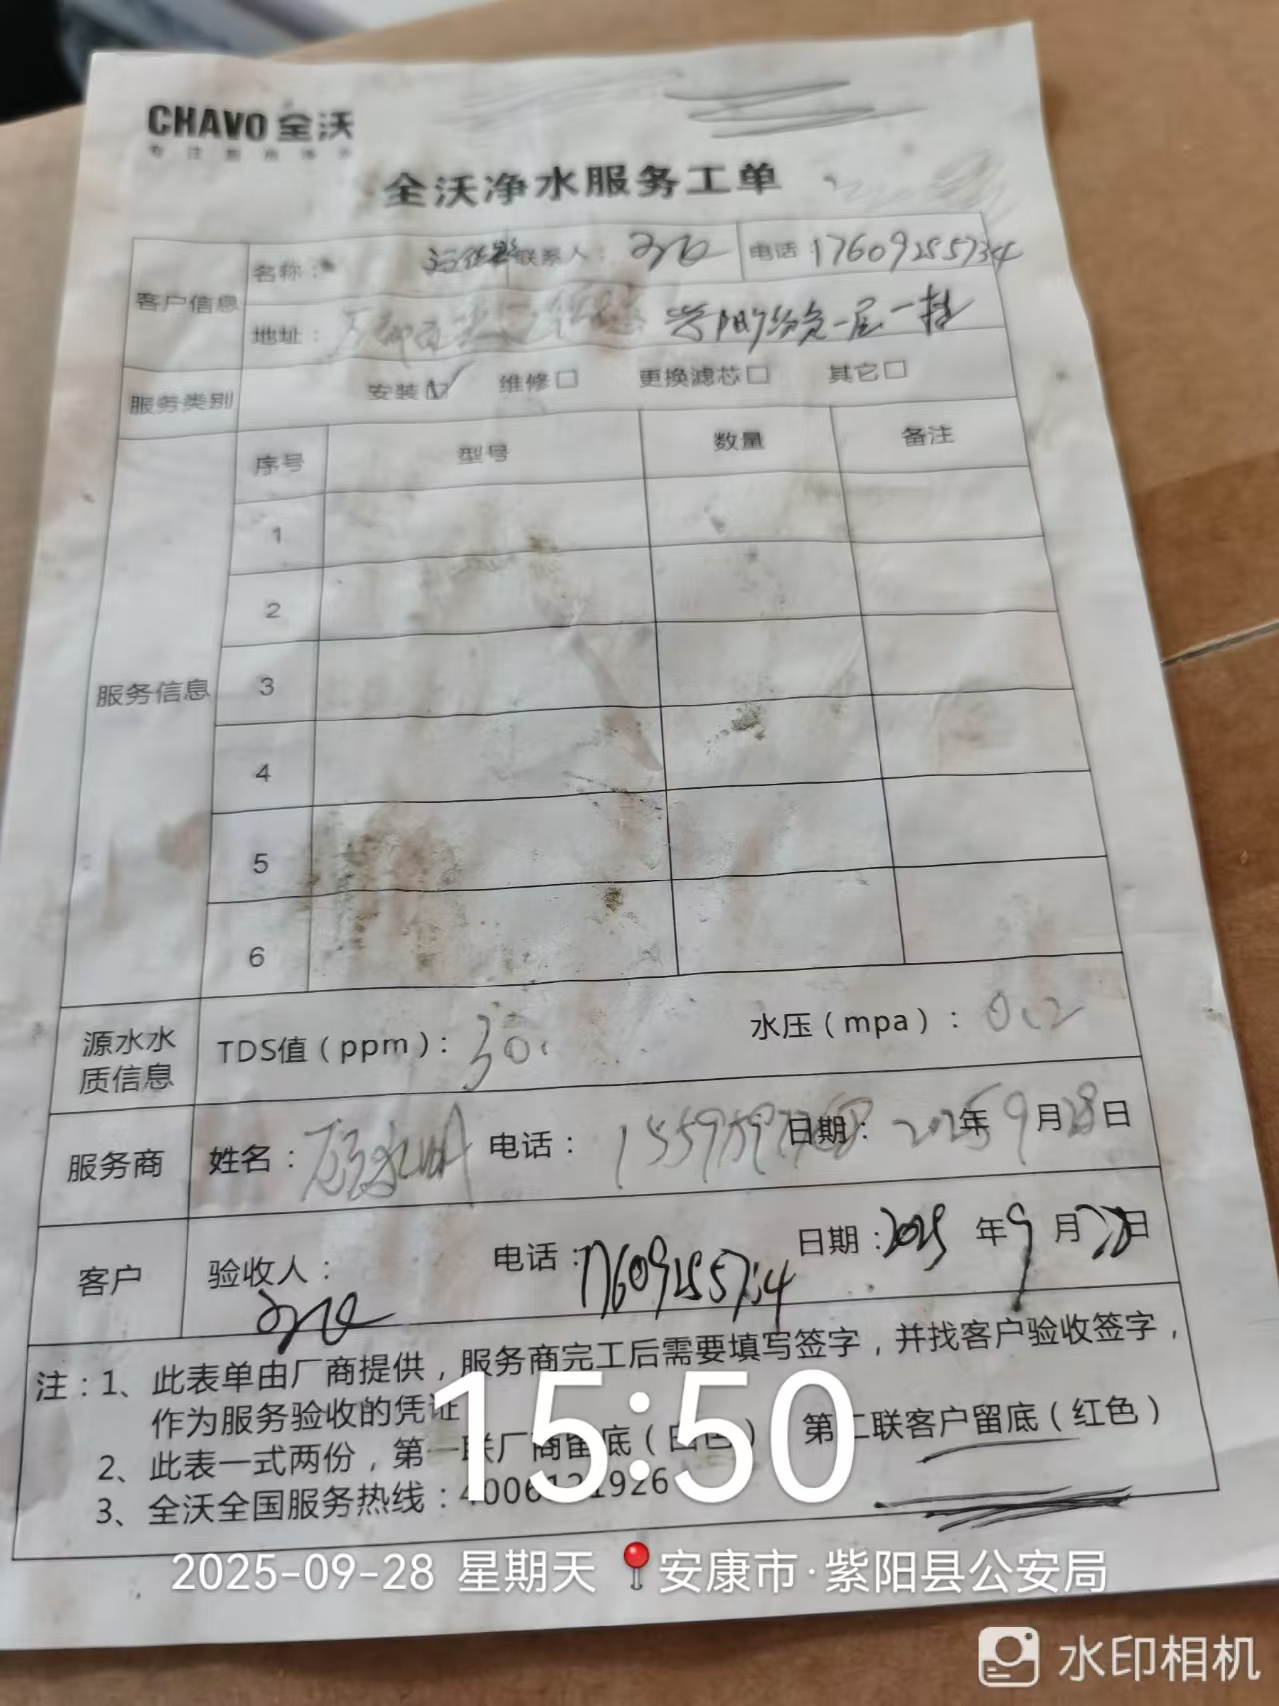 CHAVO 全沃
全沃净水服务工单
客户信息
名称: 联系人: 电话 17609255734
地址: 紫阳 一层一挂
服务类别 安装☑ 维修□ 更换滤芯□ 其它□
服务信息
序号 型号 数量 备注
1
2
3
4
5
6
源水水质信息 TDS值(ppm): 30. 水压(mpa): 0.2
服务商 姓名: 电话: 日期: 2025年9月28日
客户 验收人: 电话: 17609255734 日期: 2025年9月28日
注:1、此表单由厂商提供,服务商完工后需要填写签字,并找客户验收签字,
作为服务验收的凭证
2、此表一式两份,第一联厂商留底(白色) 第二联客户留底(红色)
3、全沃全国服务热线:4006121926
15:50
2025-09-28 星期天 安康市·紫阳县公安局
水印相机